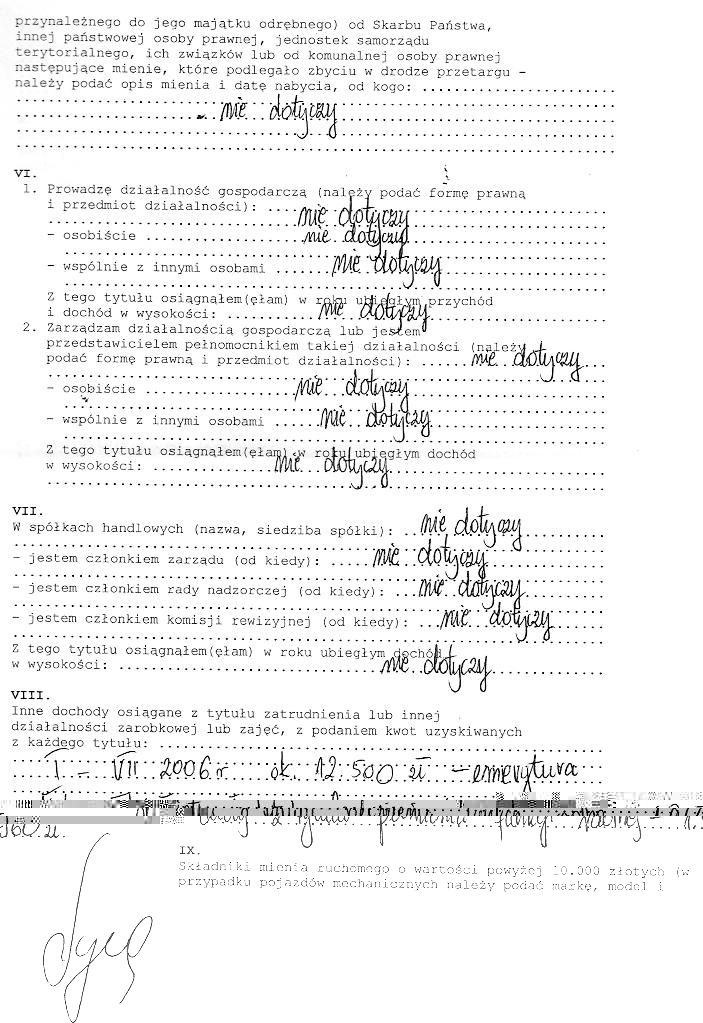 przynależnego do jego majątku odrębnego) od Skarbu Państwa,
innej państwowej osoby prawnej, jednostek samorządu
terytorialnego, ich związków lub od komunalnej osoby prawnej
następujące mienie, które podlegało zbyciu w drodze przetargu –
należy podać opis mienia i datę nabycia, od kogo:
nie dotyczy
VI.
1. Prowadzę działalność gospodarczą (należy podać formę prawną
i przedmiot działalności): nie dotyczy
- osobiście nie dotyczy
- wspólnie z innymi osobami nie dotyczy
Z tego tytułu osiągnąłem(ęłam) w roku ubiegłym przychód
i dochód w wysokości: nie dotyczy
2. Zarządzam działalnością gospodarczą lub jestem
przedstawicielem pełnomocnikiem takiej działalności (należy
podać formę prawną i przedmiot działalności): nie dotyczy
- osobiście nie dotyczy
- wspólnie z innymi osobami nie dotyczy
Z tego tytułu osiągnąłem(ęłam) w roku ubiegłym dochód
w wysokości: nie dotyczy
VII.
W spółkach handlowych (nazwa, siedziba spółki): nie dotyczy
- jestem członkiem zarządu (od kiedy): nie dotyczy
- jestem członkiem rady nadzorczej (od kiedy): nie dotyczy
- jestem członkiem komisji rewizyjnej (od kiedy): nie dotyczy
Z tego tytułu osiągnąłem(ęłam) w roku ubiegłym dochód
w wysokości: nie dotyczy
VIII.
Inne dochody osiągane z tytułu zatrudnienia lub innej
działalności zarobkowej lub zajęć, z podaniem kwot uzyskiwanych
z każdego tytułu:
I - VII 2006 r ok. 12 500 zł - emerytura
IX.
Składniki mienia ruchomego o wartości powyżej 10.000 złotych (w
przypadku pojazdów mechanicznych należy podać markę, model i